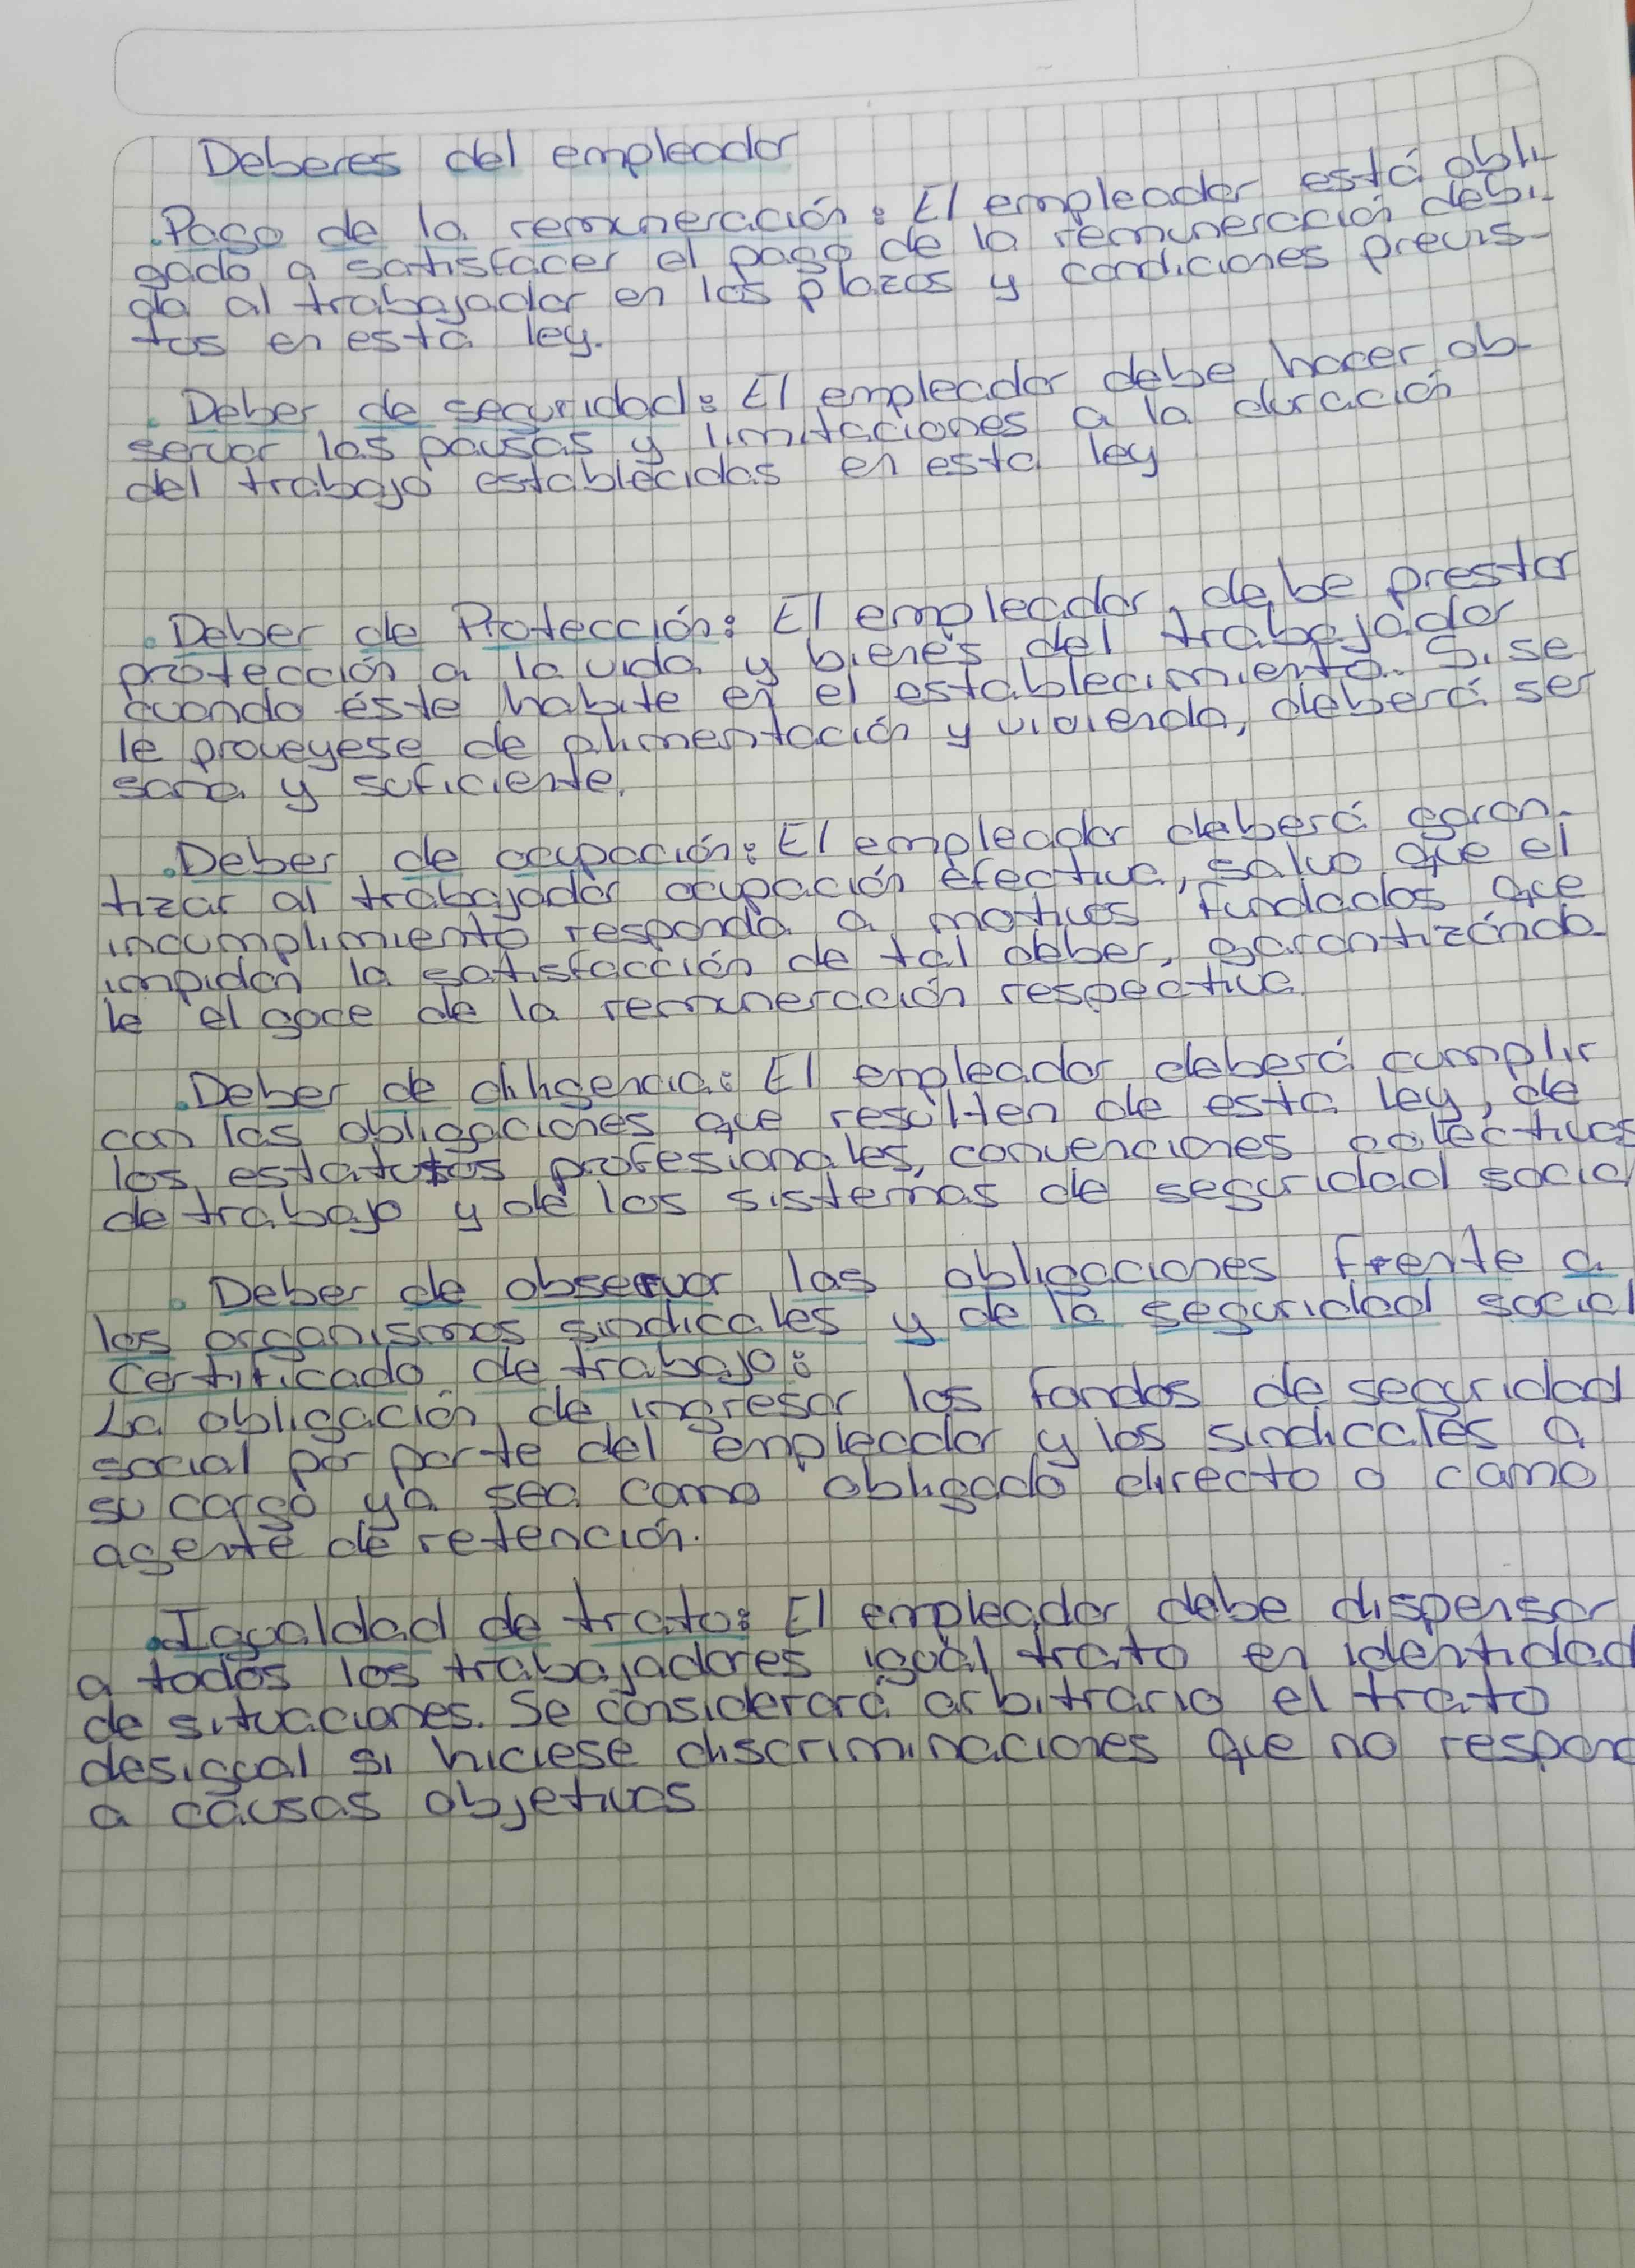 Deberes del empleador
. Pago de la remuneración: El empleador está obli-
gado a satisfacer el pago de la remuneración debi-
da al trabajador en los plazos y condiciones previs-
tos en esta ley.
. Deber de seguridad: El empleador debe hacer ob-
servar las pausas y limitaciones a la duración
del trabajo establecidas en esta ley
. Deber de Protección: El empleador, debe prestar
protección a la vida y bienes del trabajador
cuando éste habite en el establecimiento. Si se
le proveyese de alimentación y vivienda, deberá ser
sana y suficiente.
. Deber de ocupación: El empleador deberá garan-
tizar al trabajador ocupación efectiva, salvo que el
incumplimiento responda a motivos fundados que
impidan la satisfacción de tal deber, garantizándo-
le el goce de la remuneración respectiva.
. Deber de diligencia: El empleador deberá cumplir
con las obligaciones que resulten de esta ley, de
los estatutos profesionales, convenciones colectivas
de trabajo y de los sistemas de seguridad social
. Deber de observar las obligaciones frente a
los organismos sindicales y de la seguridad social
Certificado de trabajo:
La obligación de ingresar los fondos de seguridad
social por parte del empleador y los sindicales a
su cargo ya sea como obligado directo o como
agente de retención.
. Igualdad de trato: El empleador debe dispensar
a todos los trabajadores igual trato en identidad
de situaciones. Se considerará arbitrario el trato
desigual si hiciese discriminaciones que no respond
a causas objetivas